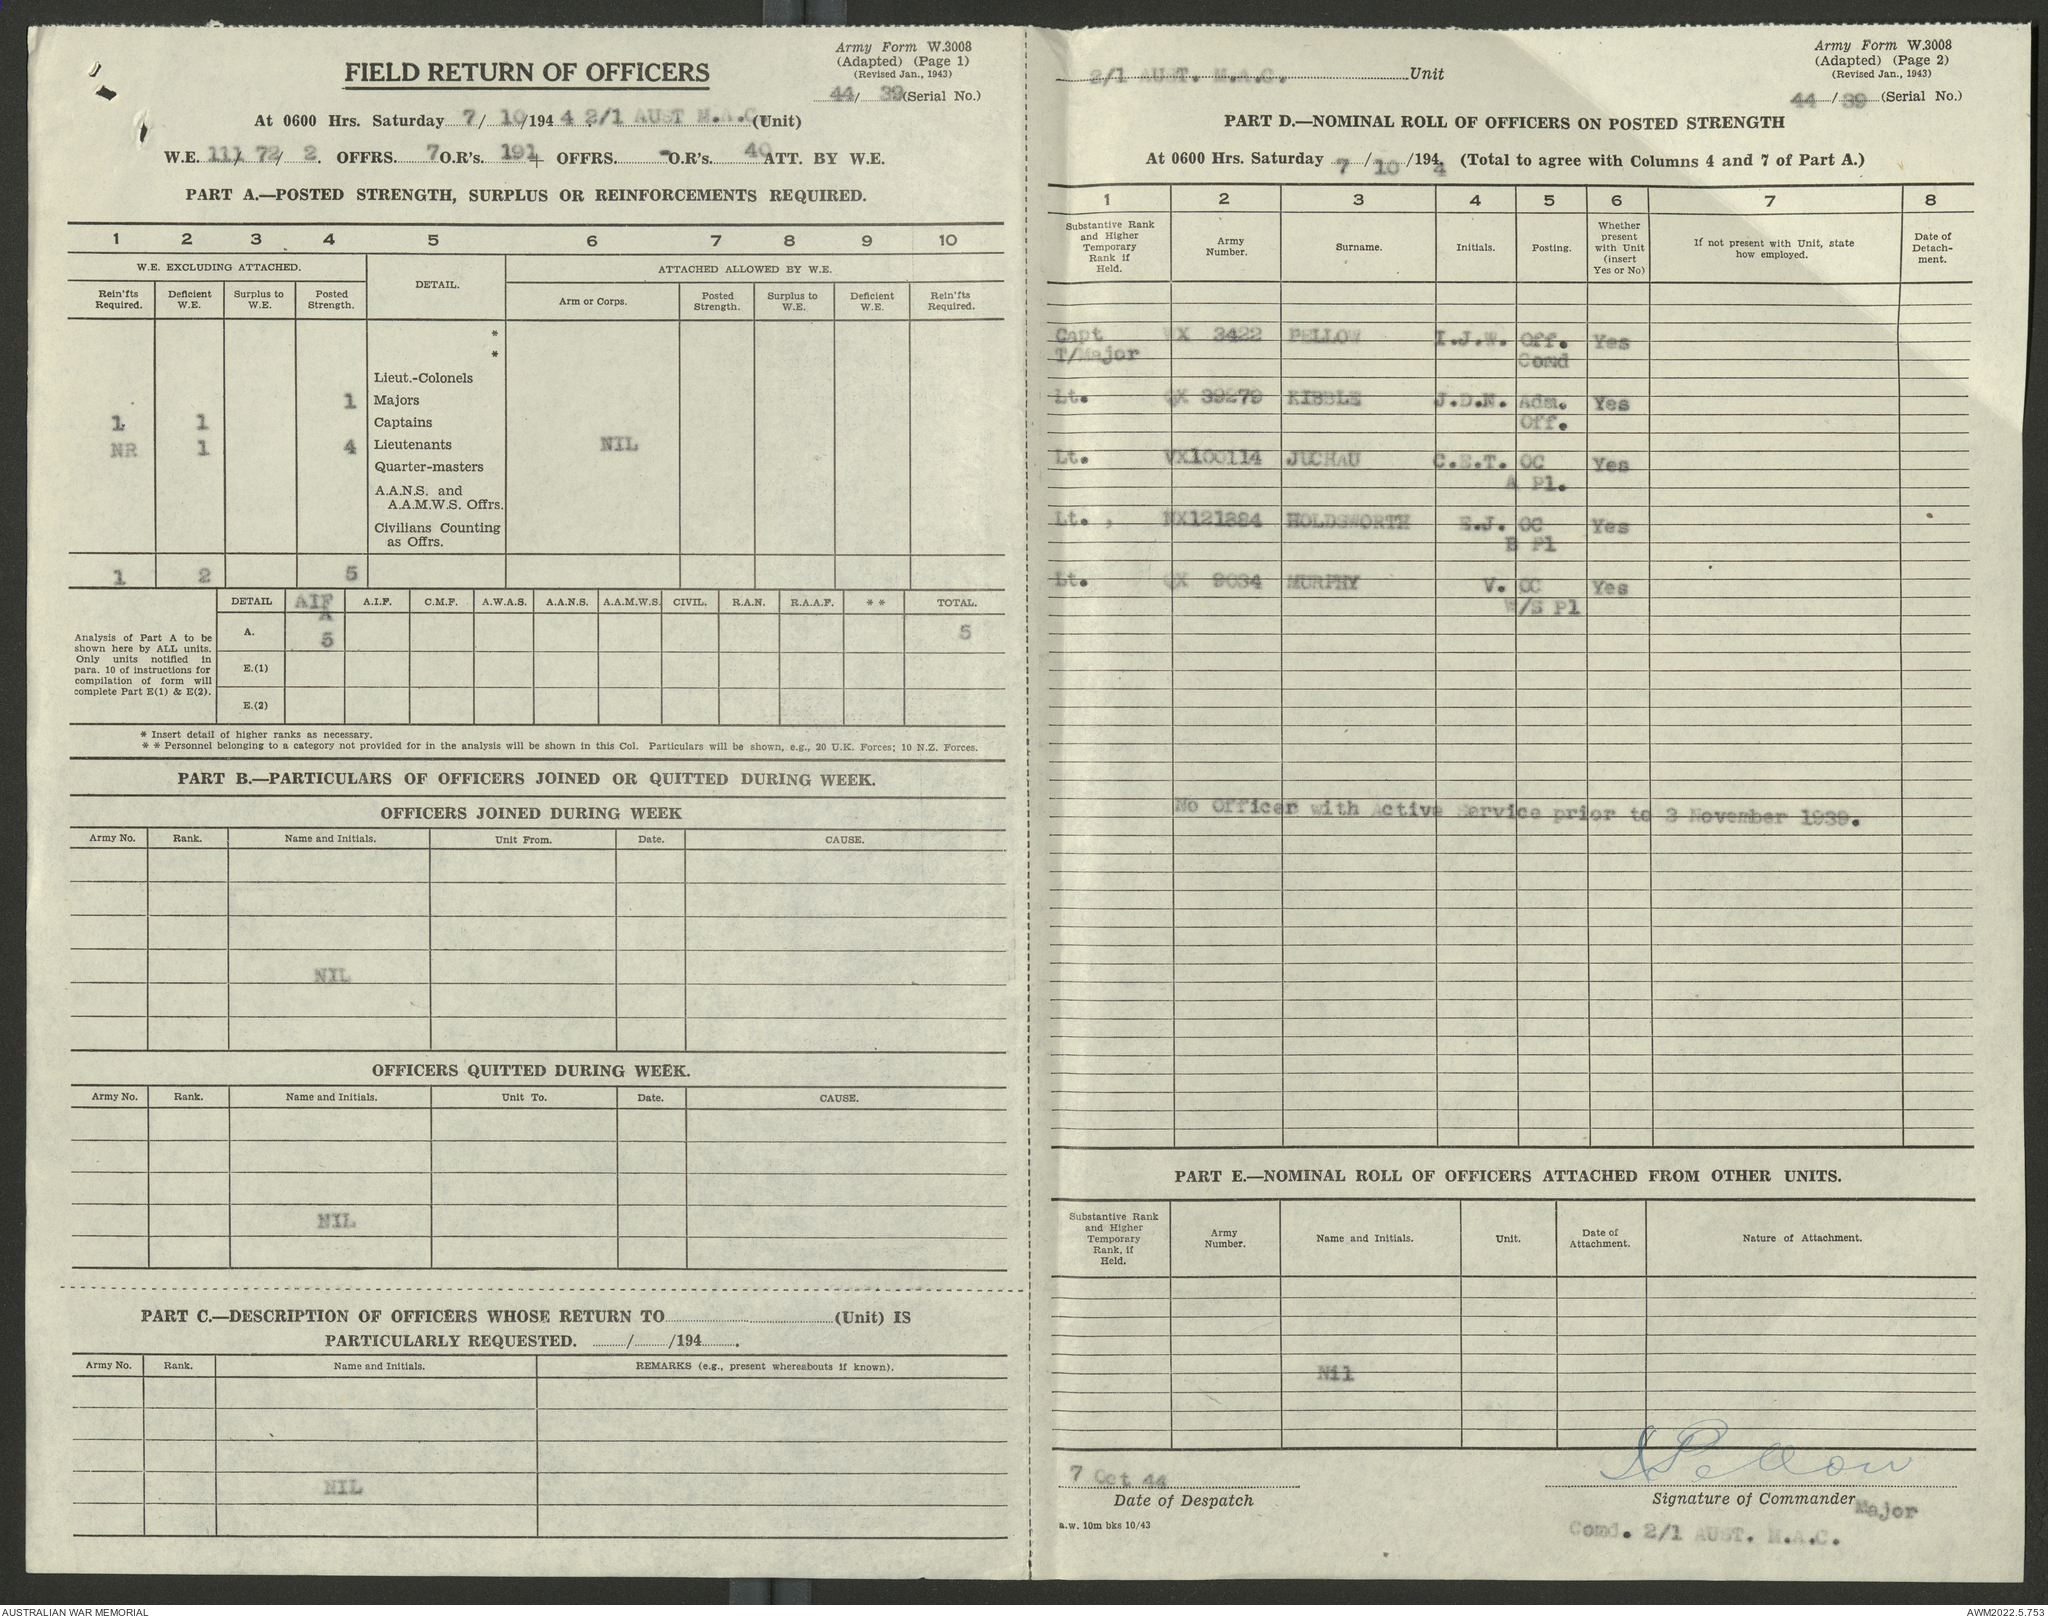 Army Form W.3008
(Adapted) (Page 1)
(Revised Jan., 1943)
44/ 39 (Serial No.)
FIELD RETURN OF OFFICERS
At 0600 Hrs. Saturday 7/ 10/194 4 2/1 AUST M.A.C. (Unit)
W.E. 111/ 72/ 2. OFFRS. 7 O.R's. 191 + OFFRS. - O.R's. 40 ATT. BY W.E.
PART A.—POSTED STRENGTH, SURPLUS OR REINFORCEMENTS REQUIRED.
1 2 3 4 5 6 7 8 9 10
W.E. EXCLUDING ATTACHED. DETAIL. ATTACHED ALLOWED BY W.E.
Rein'fts Required. Deficient W.E. Surplus to W.E. Posted Strength. Arm or Corps. Posted Strength. Surplus to W.E. Deficient W.E. Rein'fts Required.
*
*
Lieut.-Colonels
1 Majors
1 1 Captains
NR 1 4 Lieutenants NIL
Quarter-masters
A.A.N.S. and
A.A.M.W.S. Offrs.
Civilians Counting
as Offrs.
1 2 5
DETAIL AIF A.I.F. C.M.F. A.W.A.S. A.A.N.S. A.A.M.W.S. CIVIL. R.A.N. R.A.A.F. ** TOTAL.
A
A. 5 5
E.(1)
E.(2)
Analysis of Part A to be
shown here by ALL units.
Only units notified in
para. 10 of instructions for
compilation of form will
complete Part E(1) & E(2).
* Insert detail of higher ranks as necessary.
* * Personnel belonging to a category not provided for in the analysis will be shown in this Col. Particulars will be shown, e.g., 20 U.K. Forces; 10 N.Z. Forces.
PART B.—PARTICULARS OF OFFICERS JOINED OR QUITTED DURING WEEK.
OFFICERS JOINED DURING WEEK
Army No. Rank. Name and Initials. Unit From. Date. CAUSE.
NIL
OFFICERS QUITTED DURING WEEK.
Army No. Rank. Name and Initials. Unit To. Date. CAUSE.
NIL
PART C.—DESCRIPTION OF OFFICERS WHOSE RETURN TO (Unit) IS
PARTICULARLY REQUESTED. / /194 .
Army No. Rank. Name and Initials. REMARKS (e.g., present whereabouts if known).
NIL
Army Form W.3008
(Adapted) (Page 2)
(Revised Jan., 1943)
2/1 AUST. M.A.C. Unit
44 / 39 (Serial No.)
PART D.—NOMINAL ROLL OF OFFICERS ON POSTED STRENGTH
At 0600 Hrs. Saturday 7 / 10 /194 4 (Total to agree with Columns 4 and 7 of Part A.)
1 2 3 4 5 6 7 8
Substantive Rank and Higher Temporary Rank if Held. Army Number. Surname. Initials. Posting. Whether present with Unit (insert Yes or No) If not present with Unit, state how employed. Date of Detach-ment.
Capt WX 3422 PELLOW I.J.W. Off. Yes
T/Major Comd
Lt. QX 39279 KIBBLE J.D.N. Adm. Yes
Off.
Lt. VX100114 JUCHAU C.E.T. OC Yes
A Pl.
Lt. , NX121394 HOLDSWORTH E.J. OC Yes
B Pl
Lt. QX 9034 MURPHY V. OC Yes
W/S Pl
No Officer with Active Service prior to 3 November 1939.
PART E.—NOMINAL ROLL OF OFFICERS ATTACHED FROM OTHER UNITS.
Substantive Rank and Higher Temporary Rank, if Held. Army Number. Name and Initials. Unit. Date of Attachment. Nature of Attachment.
Nil
7 Oct 44 Pellow
Date of Despatch Signature of Commander
Major
a.w. 10m bks 10/43
Comd. 2/1 AUST. M.A.C.
AUSTRALIAN WAR MEMORIAL AWM2022.5.753